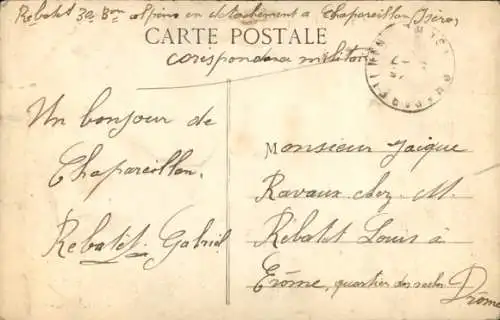 Rebatet 3e Bon alpins en detachement a Chapareillan (Isère)
CARTE POSTALE
corespondance militaire
Un bonjour de
Chapareillan.
Rebatet Gabriel
Monsieur Jaique
Ravaux chez M.
Rebatet Louis à
Erôme, quartier des
Drôme